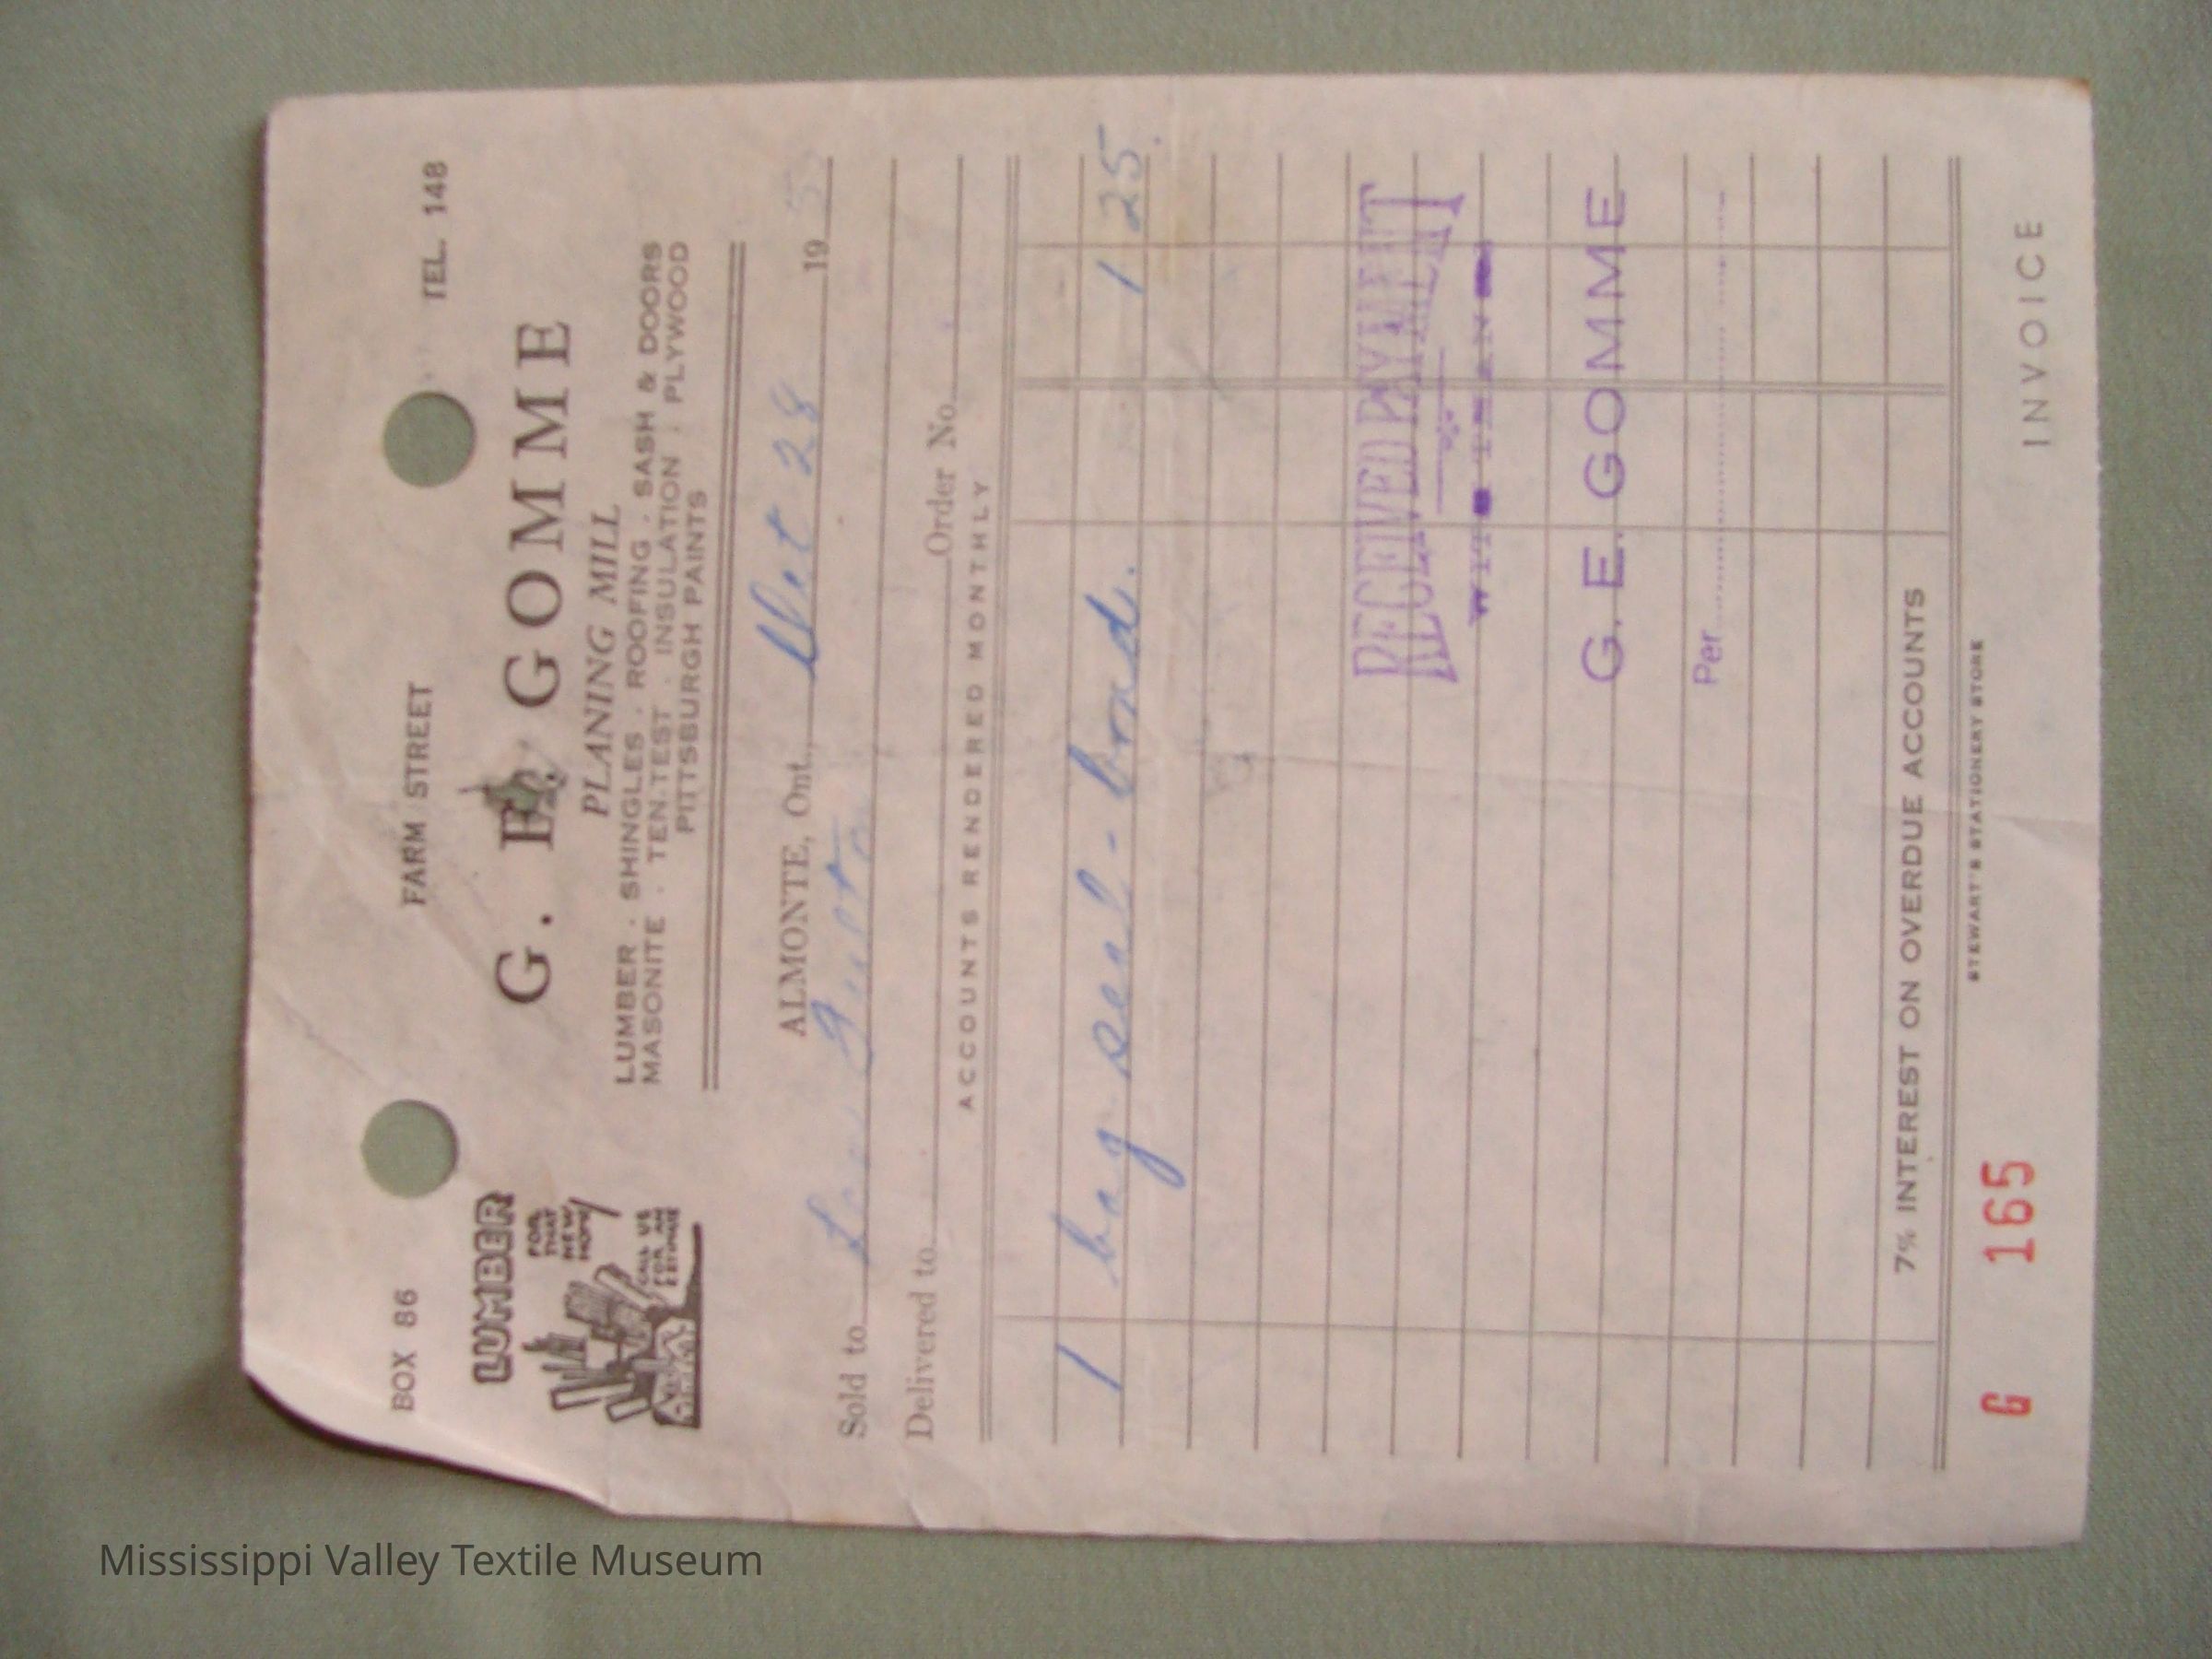 BOX 86 FARM STREET TEL. 148
LUMBER
FOR THAT NEW HOME
CALL US FOR AN ESTIMATE
G. E. GOMME
PLANING MILL
LUMBER . SHINGLES . ROOFING . SASH & DOORS
MASONITE . TEN.TEST . INSULATION . PLYWOOD
PITTSBURGH PAINTS
ALMONTE, Ont., Oct 28 195
Sold to
Delivered to Order No.
ACCOUNTS RENDERED MONTHLY
1 bag seal-bond. 1 25
RECEIVED PAYMENT
WITH THANKS
G. E. GOMME
Per
7% INTEREST ON OVERDUE ACCOUNTS
STEWART'S STATIONERY STORE
G 165 INVOICE
Mississippi Valley Textile Museum